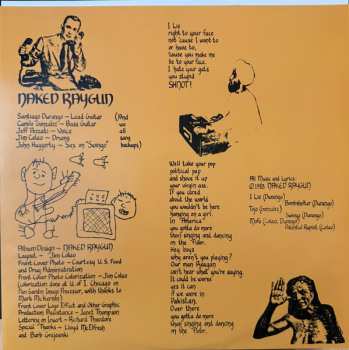 NAKED RAYGUN
Santiago Durango – Lead Guitar
Camilo Gonzalez – Bass Guitar
Jeff Pezzati – Voice
Jim Colao – Drums
John Haggerty – Sax on "Swingo"
(And
we
all
sang
backups)
Album Design – NAKED RAYGUN
Layout – Jim Colao
Front Cover Photo – Courtesy U.S. Food
and Drug Administration
Front Cover Photo Colorization – Jim Colao
(Colorization done at U. of I. Chicago on
Production Assistance – Janet Thompson
Lettering on Insert – Richard Theodore
Special Thanks – Lloyd McElfresh
and Barb Grejowski
I Lie
right to your face
not 'cause I want to
or have to,
'cause you make me
lie to your face.
I hate your guts
you stupid
SHNOT!
Well take your pop
political pap
and shove it up
your virgin ass.
If you cared
about the world
you wouldn't be here
hanging on a girl.
In "America"
you gotta do more
than singing and dancing
in the Pale.
Hey boys
why aren't you playing?
Our man Reagan
can't hear what you're saying.
It could be worse
yes it can
if we were in
Pakistan.
Over there
you gotta do more
than singing and dancing
in the Pale.
All Music and Lyrics
©1983 NAKED RAYGUN
I Lie (Durango)
Bombshelter (Durango)
Tojo (Gonzalez)
Swingo (Durango)
Mofo (Colao, Durango)